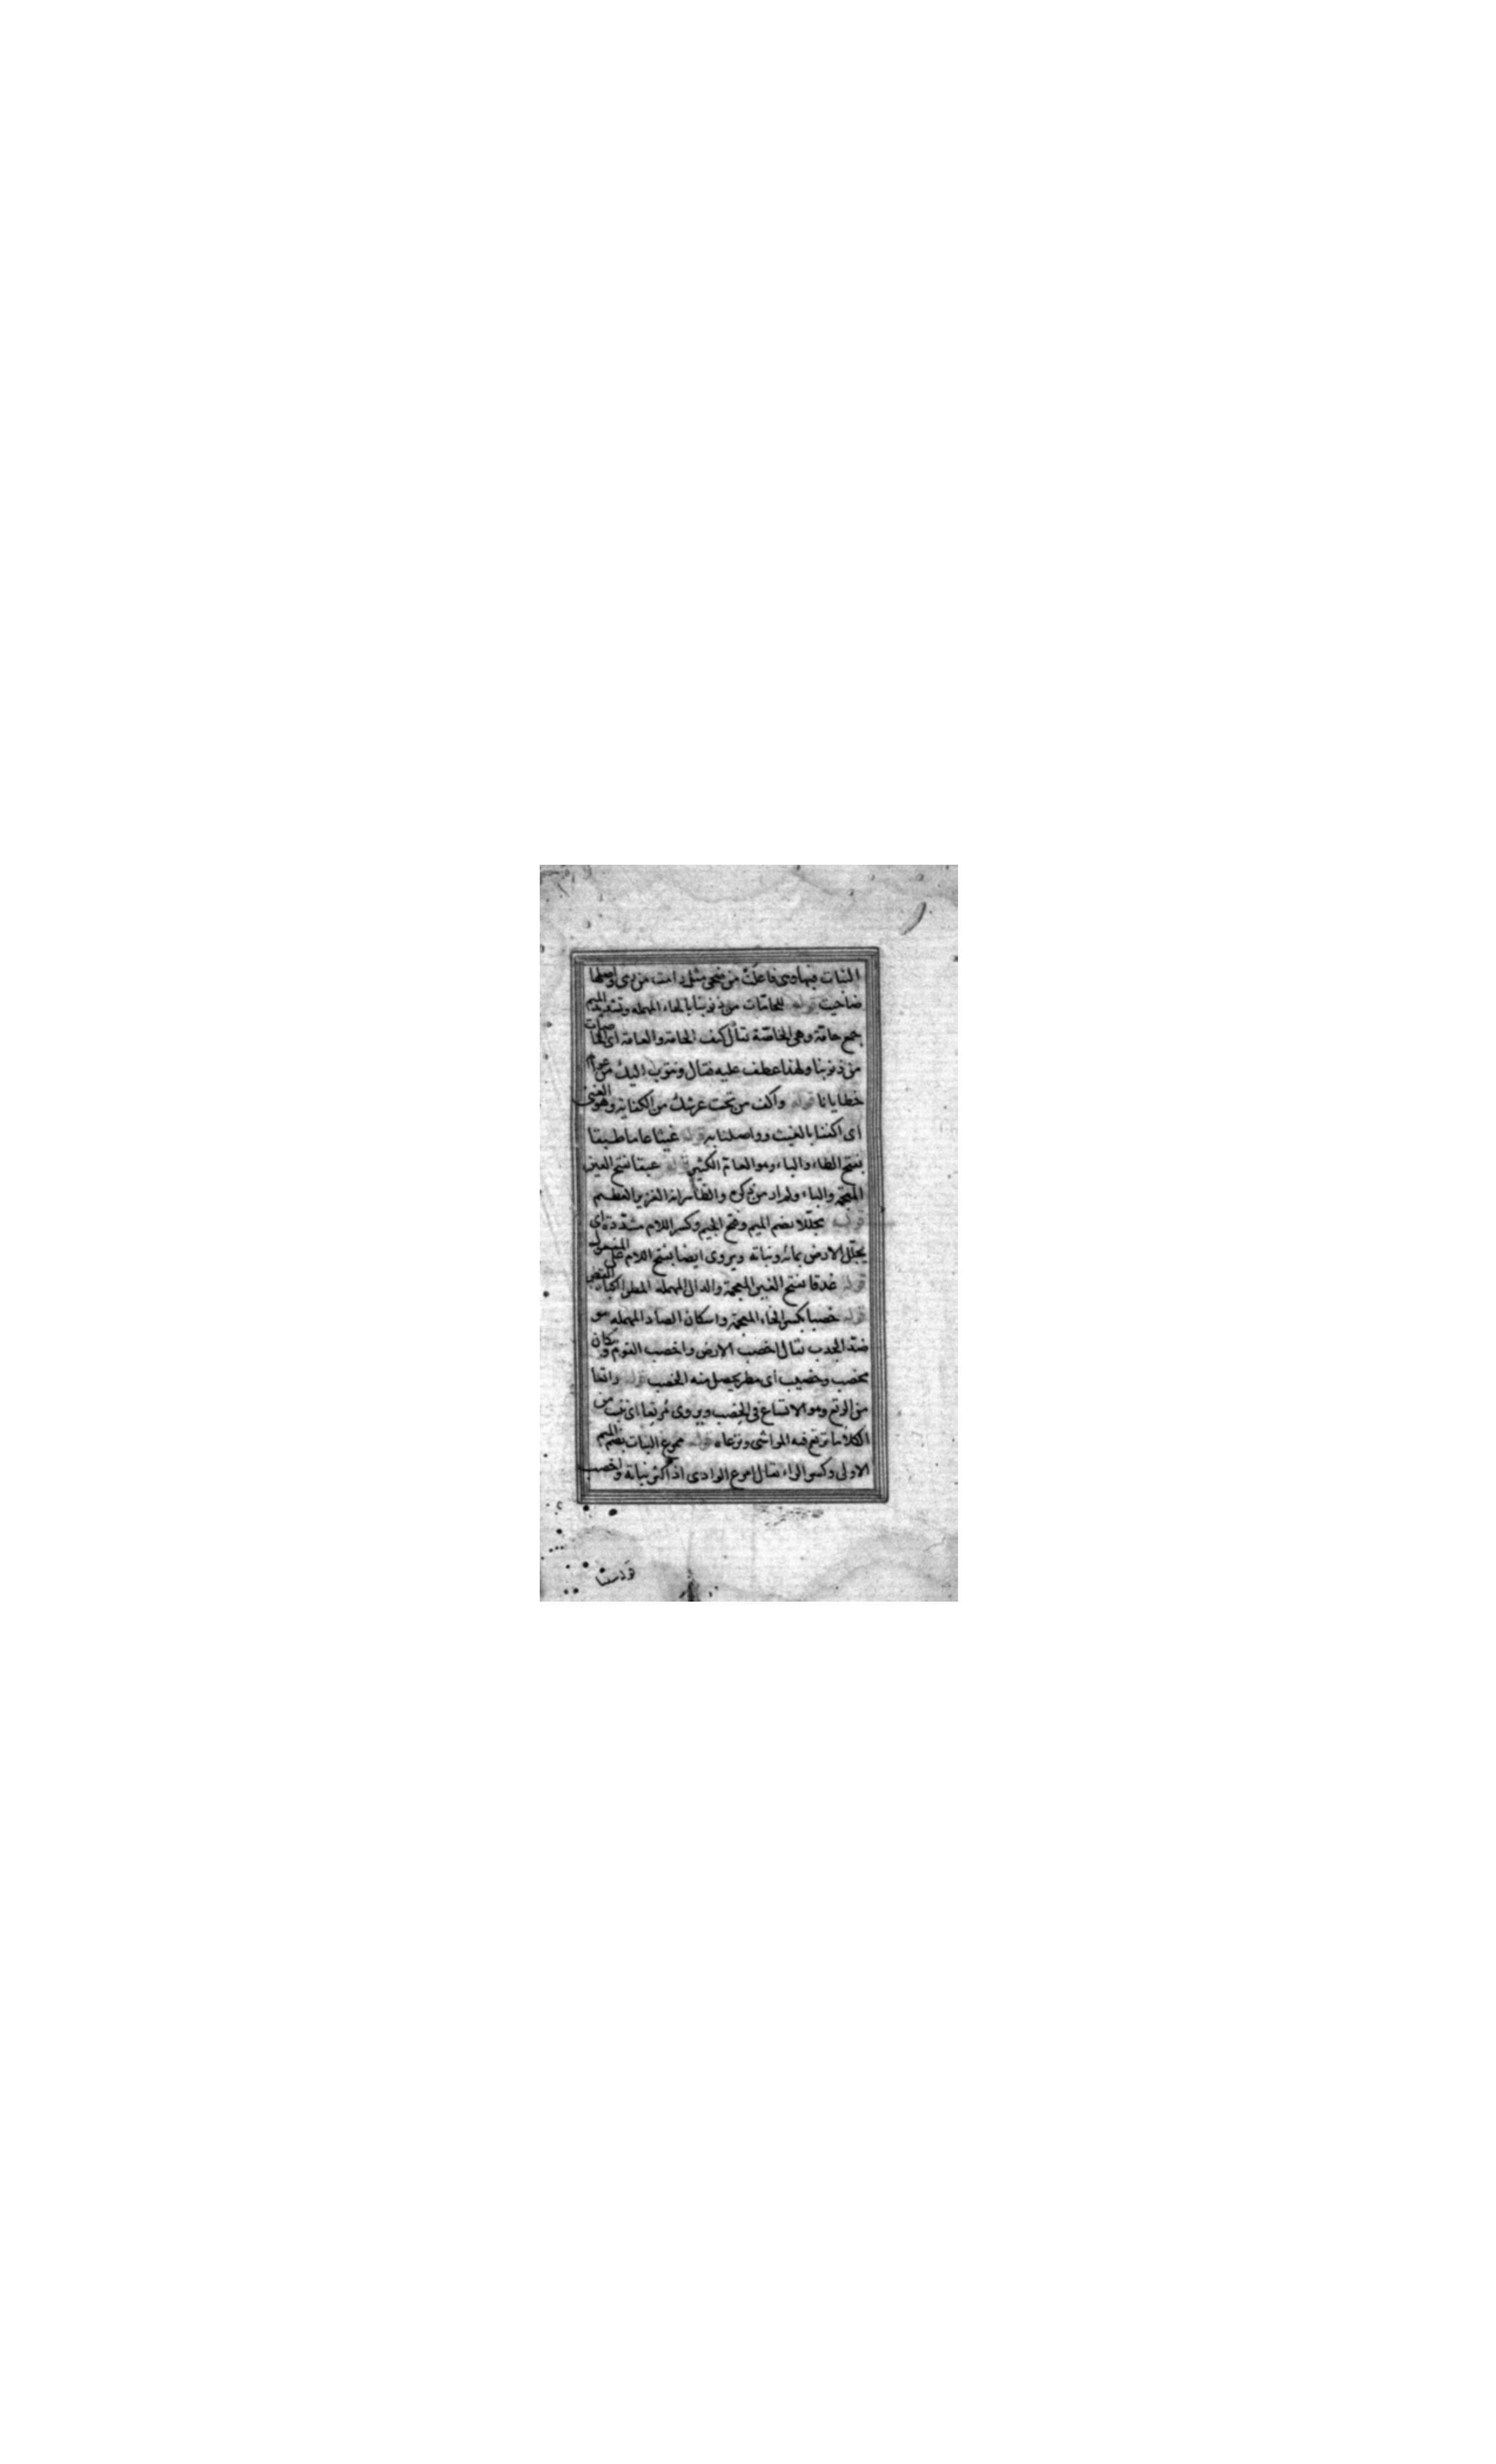 النبات فيها وهى فاعلت من ضحى مثل رامت من رمى واصلها
ضاحيت قوله للحامات من ذنوبنا بالحاء المهمله وتشديد الميم
جمع حامة وهى الخاصة يقال كيف الحامة والعامة اى الخاصات
من ذنوبنا ولهذا عطف عليه فقال ونتوب اليك من عوام
خطايانا قوله واكف من تحت عرشك من الكفاية وهو الغنى
اى اكفنا بالغيث وواصلنا به قوله غيثا عاما طبقا
بفتح الطاء والباء وهو العام الكثير قوله غبقا بفتح الغين
المعجمة والباء
قوله مجللا بضم الميم وفتح الجيم وكسر اللام مشددة اى
يجلل الارض بمائه ونباته ويروى ايضا بفتح اللام على المفعول
قوله غدقا بفتح الغين المعجمة والدال المهمله المطر الكبار القطر
قوله خصبا بكسر الخاء المعجمة واسكان الصاد المهمله هو
ضد الجدب يقال اخصب الارض واخصب القوم ومكان
مخصب وخصيب اى مطر يحصل منه الخصب قوله راتعا
من الرتع وهو الاتساع فى الخصب ويروى مُرتِعا اى ينبت من
الكلا ما ترتع فيه المواشى وترعاه قوله ممرع النبات بضم الميم
الاولى وكسر الراء يقال امرع الوادى اذا كثر نباته واخصب